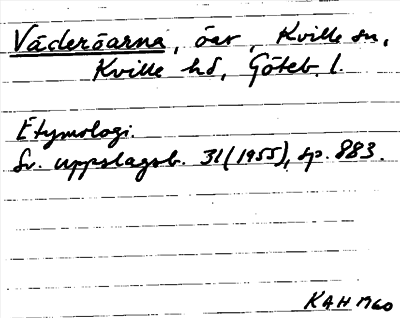 Väderöarna, öar, Kville sn,
Kville hd, Göteb. l.
Etymologi.
Sv. uppslagsb. 31(1955), sp. 883.
KAH 1960